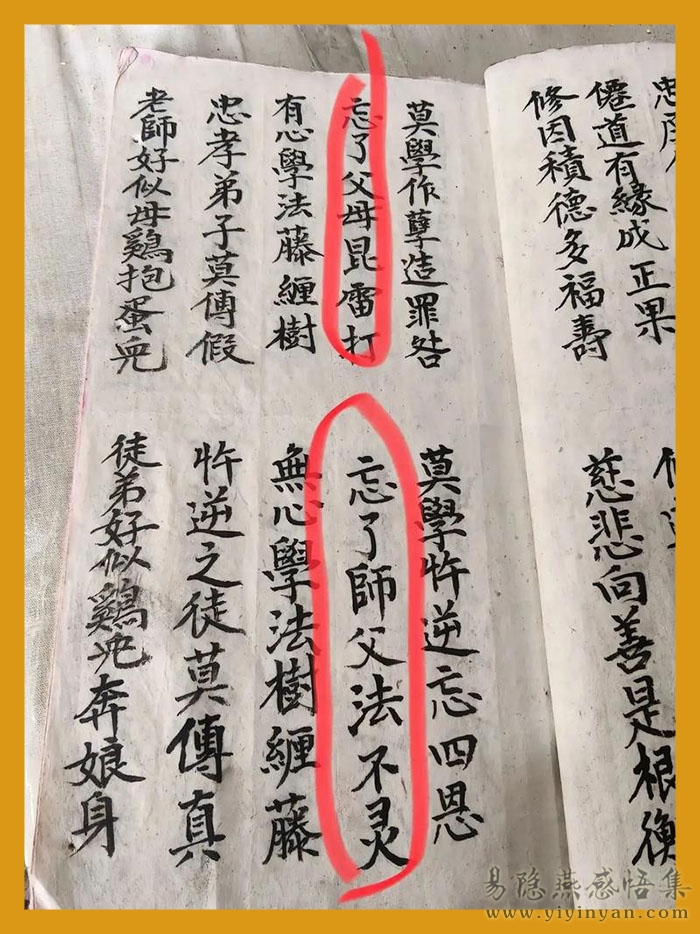 忠
僊道有緣成正果
修因積德多福壽
慈悲向善是根衡
莫學作孽造罪咎
莫學忤逆忘四恩
忘了父母昆雷打
忘了師父法不灵
有心學法藤纏樹
無心學法樹纏藤
忠孝弟子莫傳假
忤逆之徒莫傳真
老師好似母鷄抱蛋兒
徒弟好似鷄兒奔娘身
易隐燕感悟集
www.yiyinyan.com